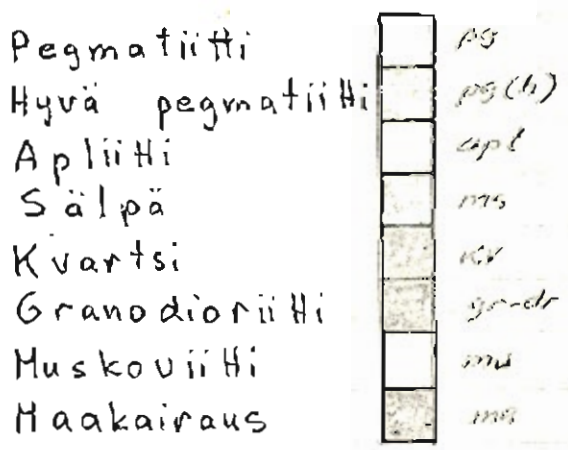 Pegmatiitti pg
Hyvä pegmatiitti pg(h)
Apliitti apl
Sälpä ms
Kvartsi kv
Granodioriitti gr-dr
Muskoviitti mu
Maakairaus ma